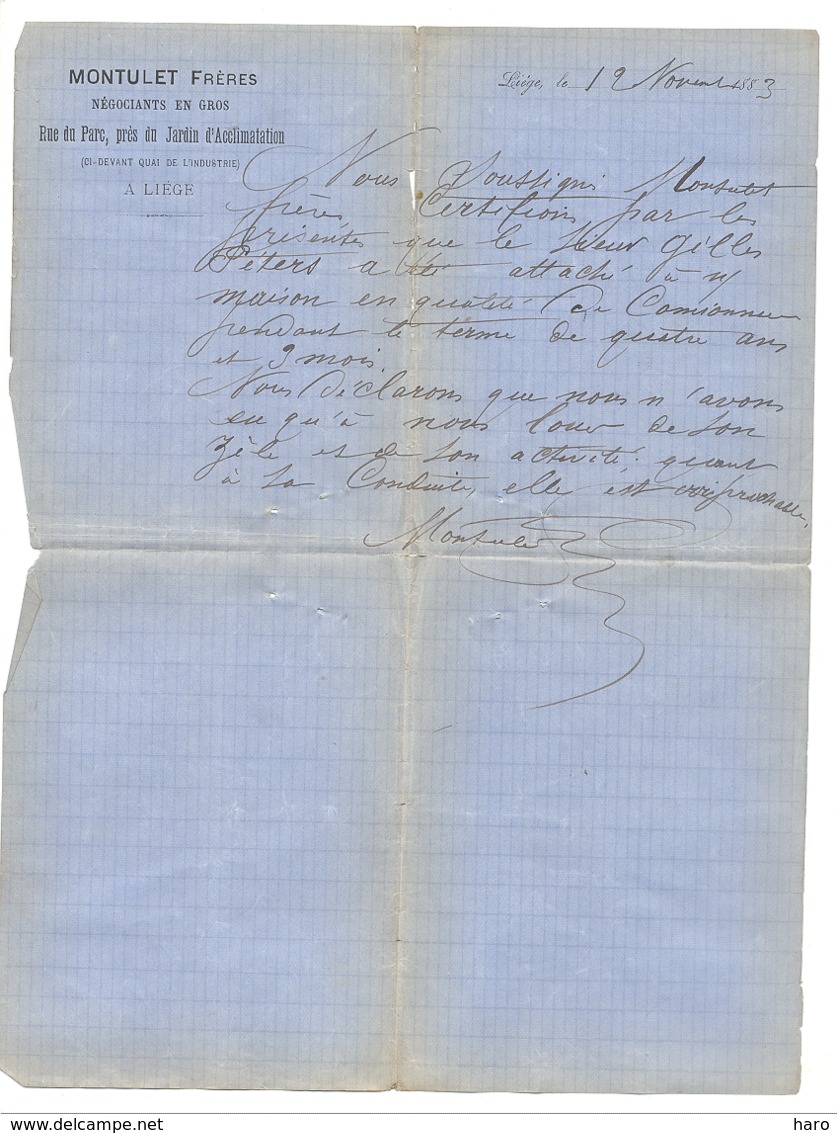 MONTULET FRÈRES
NÉGOCIANTS EN GROS
Rue du Parc, près du Jardin d'Acclimatation
(CI-DEVANT QUAI DE L'INDUSTRIE)
A LIÉGE
Liége, le 12 Novemb 1883
Nous Soussignés Montulet
frères Certifions par les
présentes que le Sieur Gilles
Péters a été attaché à n/
maison en qualité de Camionneur
pendant le terme de quatre ans
et 9 mois.
Nous Déclarons que nous n'avons
eu qu'à nous louer de son
zèle et de son activité; quant
à sa Conduite, elle est irréprochable.
Montulet
delcampe.net
haro